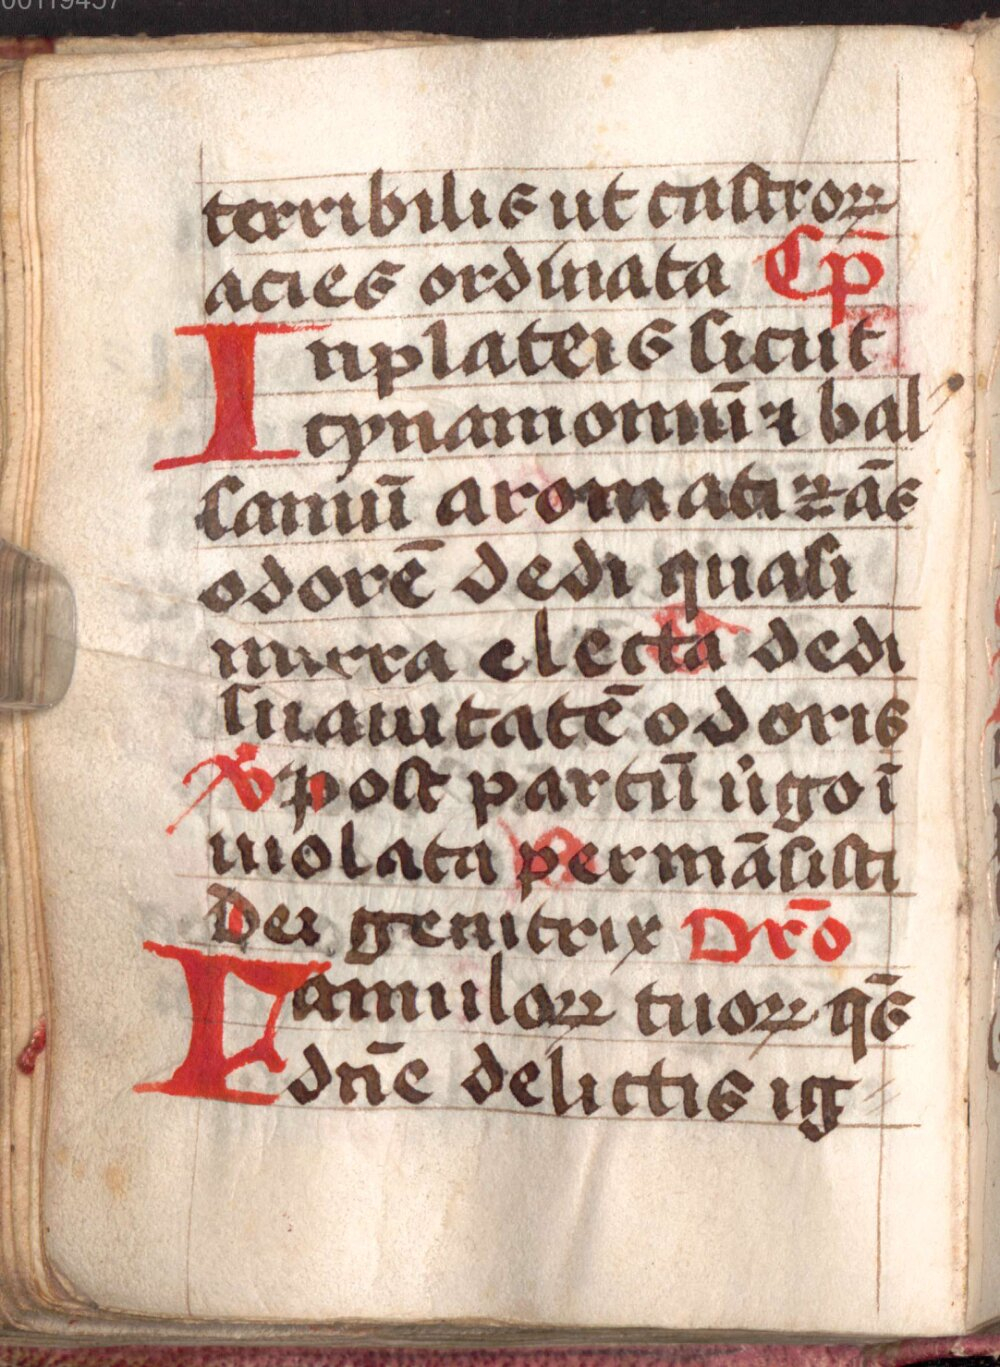 00119457
terribilis ut castroꝝ
acies ordinata Cp̄
In plateis sicut
cynamomū ⁊ bal
samū aromatizās
odorē dedi quasi
mirra electa dedi
suauitatē odoris
℣ post partū u̇go ī
uiolata permāsisti
Dei genitrix Orō
Famuloꝝ tuoꝝ qs̄
dn̄e delictis ig